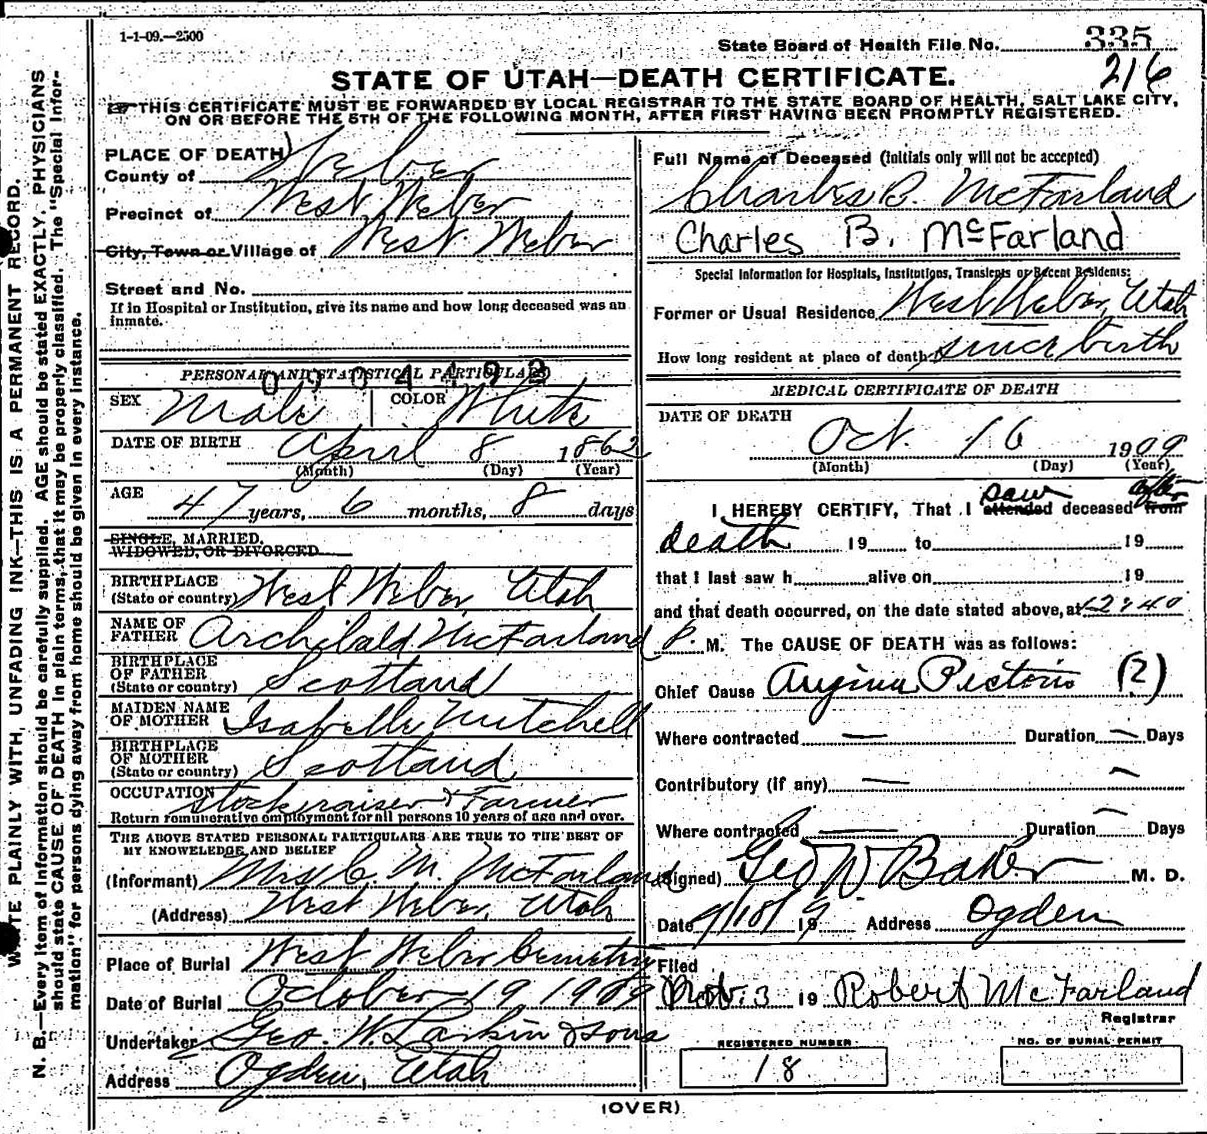 1-1-09.—2500
State Board of Health File No. 335
216
STATE OF UTAH—DEATH CERTIFICATE.
THIS CERTIFICATE MUST BE FORWARDED BY LOCAL REGISTRAR TO THE STATE BOARD OF HEALTH, SALT LAKE CITY,
ON OR BEFORE THE 5TH OF THE FOLLOWING MONTH, AFTER FIRST HAVING BEEN PROMPTLY REGISTERED.
WRITE PLAINLY WITH, UNFADING INK—THIS IS A PERMANENT RECORD.
N. B.—Every item of information should be carefully supplied. AGE should be stated EXACTLY. PHYSICIANS
should state CAUSE OF DEATH in plain terms, that it may be properly classified. The "Special Infor-
mation" for persons dying away from home should be given in every instance.
PLACE OF DEATH
County of Weber
Precinct of West Weber
City, Town or Village of West Weber
Street and No.
If in Hospital or Institution, give its name and how long deceased was an
inmate.
PERSONAL AND STATISTICAL PARTICULARS
0904492
SEX Male COLOR White
DATE OF BIRTH April 8 1862
(Month) (Day) (Year)
AGE 47 years, 6 months, 8 days
SINGLE, MARRIED,
WIDOWED, OR DIVORCED
BIRTHPLACE
(State or country) West Weber, Utah
NAME OF
FATHER Archibald McFarland
BIRTHPLACE
OF FATHER
(State or country) Scotland
MAIDEN NAME
OF MOTHER Isabelle Mitchell
BIRTHPLACE
OF MOTHER
(State or country) Scotland
OCCUPATION Stockraiser & Farmer
Return remunerative employment for all persons 10 years of age and over.
THE ABOVE STATED PERSONAL PARTICULARS ARE TRUE TO THE BEST OF
MY KNOWELEDGE AND BELIEF
(Informant) Mrs C. M. McFarland
(Address) West Weber, Utah
Place of Burial West Weber Cemetery
Date of Burial October 19 1909
Undertaker Geo. W. Larkin & sons
Address Ogden, Utah
Full Name of Deceased (Initials only will not be accepted)
Charles B. McFarland
Charles B. McFarland
Special Information for Hospitals, Institutions, Transients or Recent Residents:
Former or Usual Residence West Weber, Utah
How long resident at place of death since birth
MEDICAL CERTIFICATE OF DEATH
DATE OF DEATH
Oct. 16 1909
(Month) (Day) (Year)
saw after
I HEREBY CERTIFY, That I attended deceased from
death 19 to 19
that I last saw h alive on 19
and that death occurred, on the date stated above, at 2:40
P. M. The CAUSE OF DEATH was as follows:
Chief Cause Angina Pectoris (2)
Where contracted — Duration — Days
Contributory (if any) —
Where contracted — Duration — Days
(Signed) Geo W Baker M. D.
Date 9/18/ 19 9 Address Ogden
Filed
Nov. 3 19 Robert McFarland
Registrar
REGISTERED NUMBER
18
NO. OF BURIAL PERMIT
(OVER)